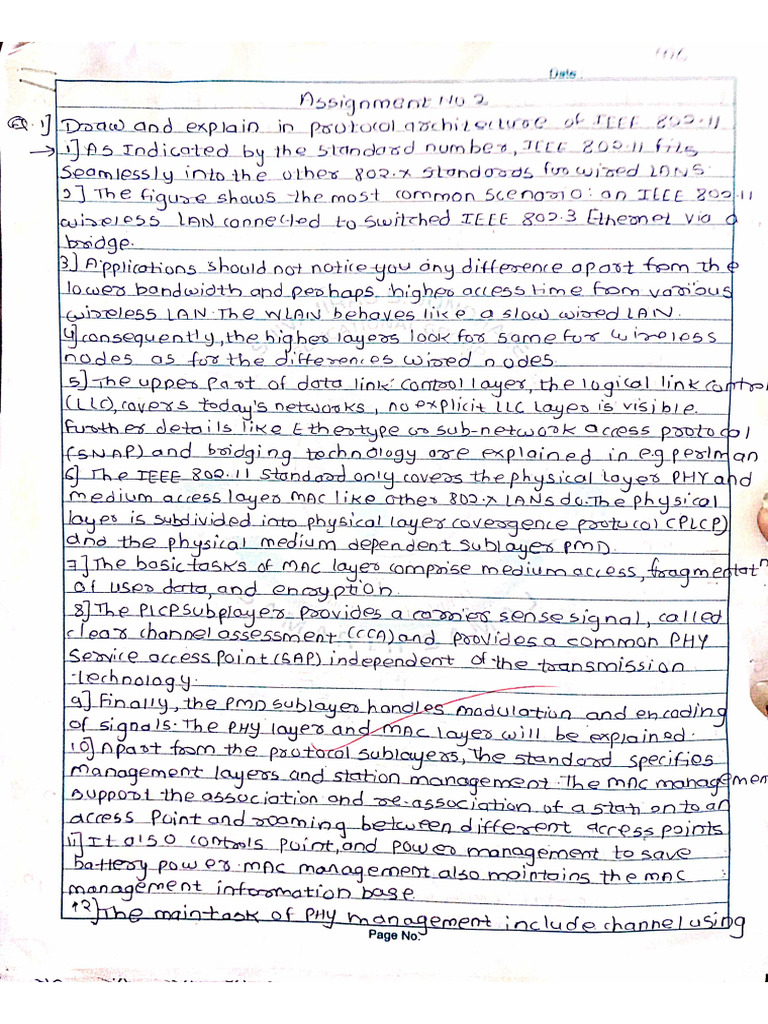 Date
Assignment No 2
Q.1] Draw and explain in protocol architecture of IEEE 802.11
→ 1] As Indicated by the standard number, IEEE 802.11 fits
seamlessly into the other 802.x standards for wired LANS.
2] The figure shows the most common scenario: an IEEE 802.11
wireless LAN connected to switched IEEE 802.3 Ethernet via a
bridge.
3] Applications should not notice you any difference apart from the
lower bandwidth and perhaps higher access time from various
wireless LAN. The WLAN behaves like a slow wired LAN.
4] consequently, the higher layers look for same for wireless
nodes as for the differences wired nodes.
5] The upper part of data link control layer, the logical link control
(LLC), covers today's networks, no explicit LLC layer is visible.
further details like Ethertype or sub-network access protocol
(SNAP) and bridging technology are explained in e.g perlman
6] The IEEE 802.11 standard only covers the physical layer PHY and
medium access layer MAC like other 802.x LANs do. The physical
layer is subdivided into physical layer covergence protocol (PLCP)
and the physical medium dependent sublayer PMD.
7] The basic tasks of MAC layer comprise medium access, fragmentatn
of user data, and encryption.
8] The PLCP subplayer provides a carrier sense signal, called
clear channel assessment (CCA) and provides a common PHY
service access point (SAP) independent of the transmission
technology.
9] Finally, the PMD sublayer handles modulation and encoding
of signals. The PHY layer and MAC layer will be explained.
10] Apart from the protocol sublayers, the standard specifies
management layers and station management. The mac managemen
support the association and re-association of a station to an
access point and roaming between different access points
11] It also controls point, and power management to save
battery power. MAC management also maintains the MAC
management information base.
12] The main task of PHY management include channel using
Page No: